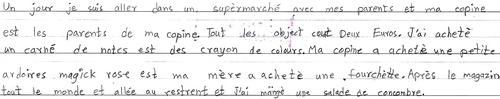 Un jour je suis aller dans un supèrmarché avec mes parents et ma copine
est les parents de ma copine. Tout les object cout Deux Euros. J'ai achetè
un carné de notes est des crayon de colours. Ma copine a achetè une petite
ardoires magick rose est ma mère a acheté une fourchette. Après le magazin
tout le monde et allée au restrent et J'ai mangé une salade de concombre.